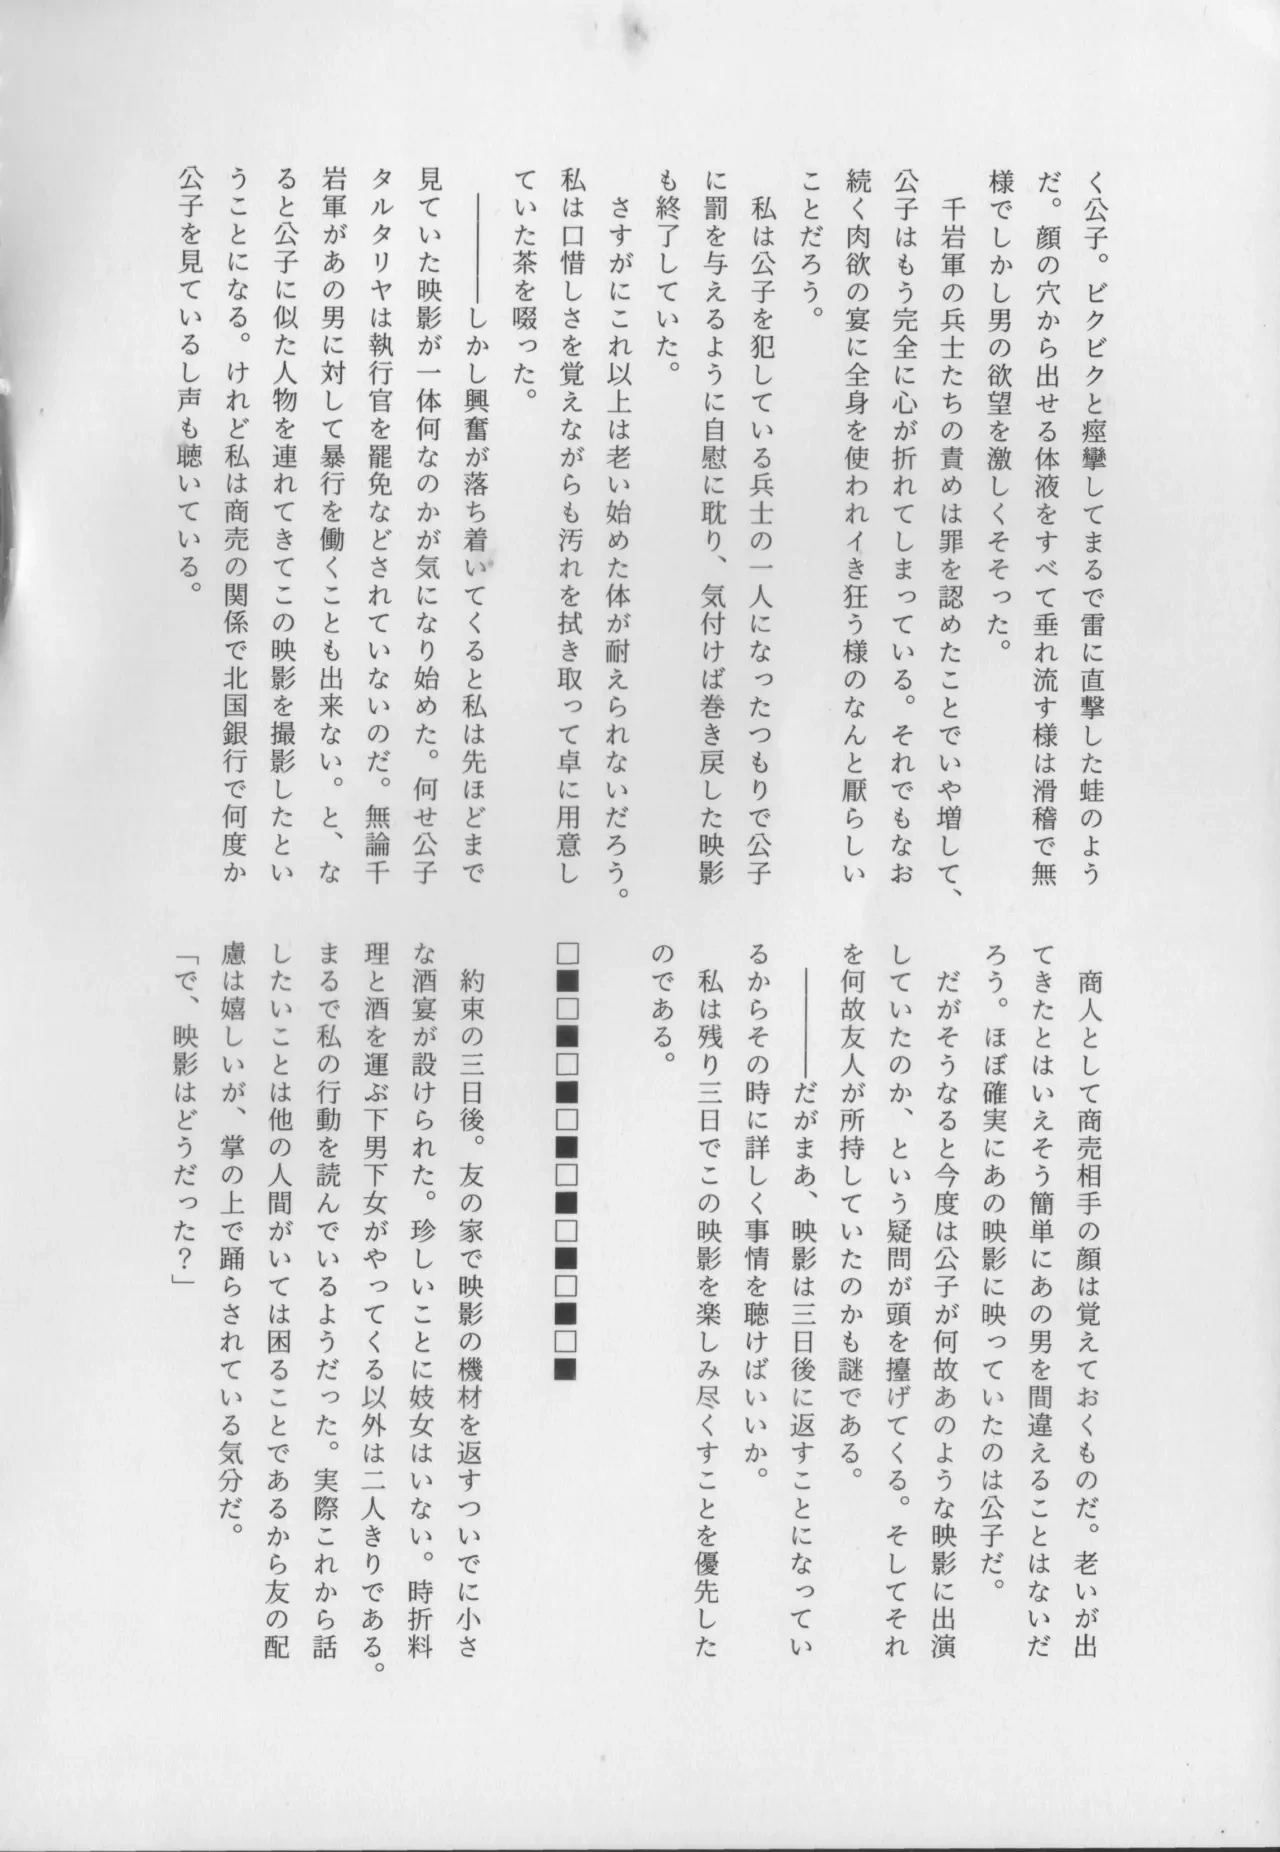 く公子。ビクビクと痙攣してまるで雷に直撃した蛙のよう
だ。顔の穴から出せる体液をすべて垂れ流す様は滑稽で無
様でしかし男の欲望を激しくそそった。
　千岩軍の兵士たちの責めは罪を認めたことでいや増して、
公子はもう完全に心が折れてしまっている。それでもなお
続く肉欲の宴に全身を使われイき狂う様のなんと厭らしい
ことだろう。
　私は公子を犯している兵士の一人になったつもりで公子
に罰を与えるように自慰に耽り、気付けば巻き戻した映影
も終了していた。
　さすがにこれ以上は老い始めた体が耐えられないだろう。
私は口惜しさを覚えながらも汚れを拭き取って卓に用意し
ていた茶を啜った。
　――――しかし興奮が落ち着いてくると私は先ほどまで
見ていた映影が一体何なのかが気になり始めた。何せ公子
タルタリヤは執行官を罷免などされていないのだ。無論千
岩軍があの男に対して暴行を働くことも出来ない。と、な
ると公子に似た人物を連れてきてこの映影を撮影したとい
うことになる。けれど私は商売の関係で北国銀行で何度か
公子を見ているし声も聴いている。
　商人として商売相手の顔は覚えておくものだ。老いが出
てきたとはいえそう簡単にあの男を間違えることはないだ
ろう。ほぼ確実にあの映影に映っていたのは公子だ。
　だがそうなると今度は公子が何故あのような映影に出演
していたのか、という疑問が頭を擡げてくる。そしてそれ
を何故友人が所持していたのかも謎である。
　――――だがまあ、映影は三日後に返すことになってい
るからその時に詳しく事情を聴けばいいか。
　私は残り三日でこの映影を楽しみ尽くすことを優先した
のである。
□■□■□■□■□■□■□■□■
　約束の三日後。友の家で映影の機材を返すついでに小さ
な酒宴が設けられた。珍しいことに妓女はいない。時折料
理と酒を運ぶ下男下女がやってくる以外は二人きりである。
まるで私の行動を読んでいるようだった。実際これから話
したいことは他の人間がいては困ることであるから友の配
慮は嬉しいが、掌の上で踊らされている気分だ。
「で、映影はどうだった？」